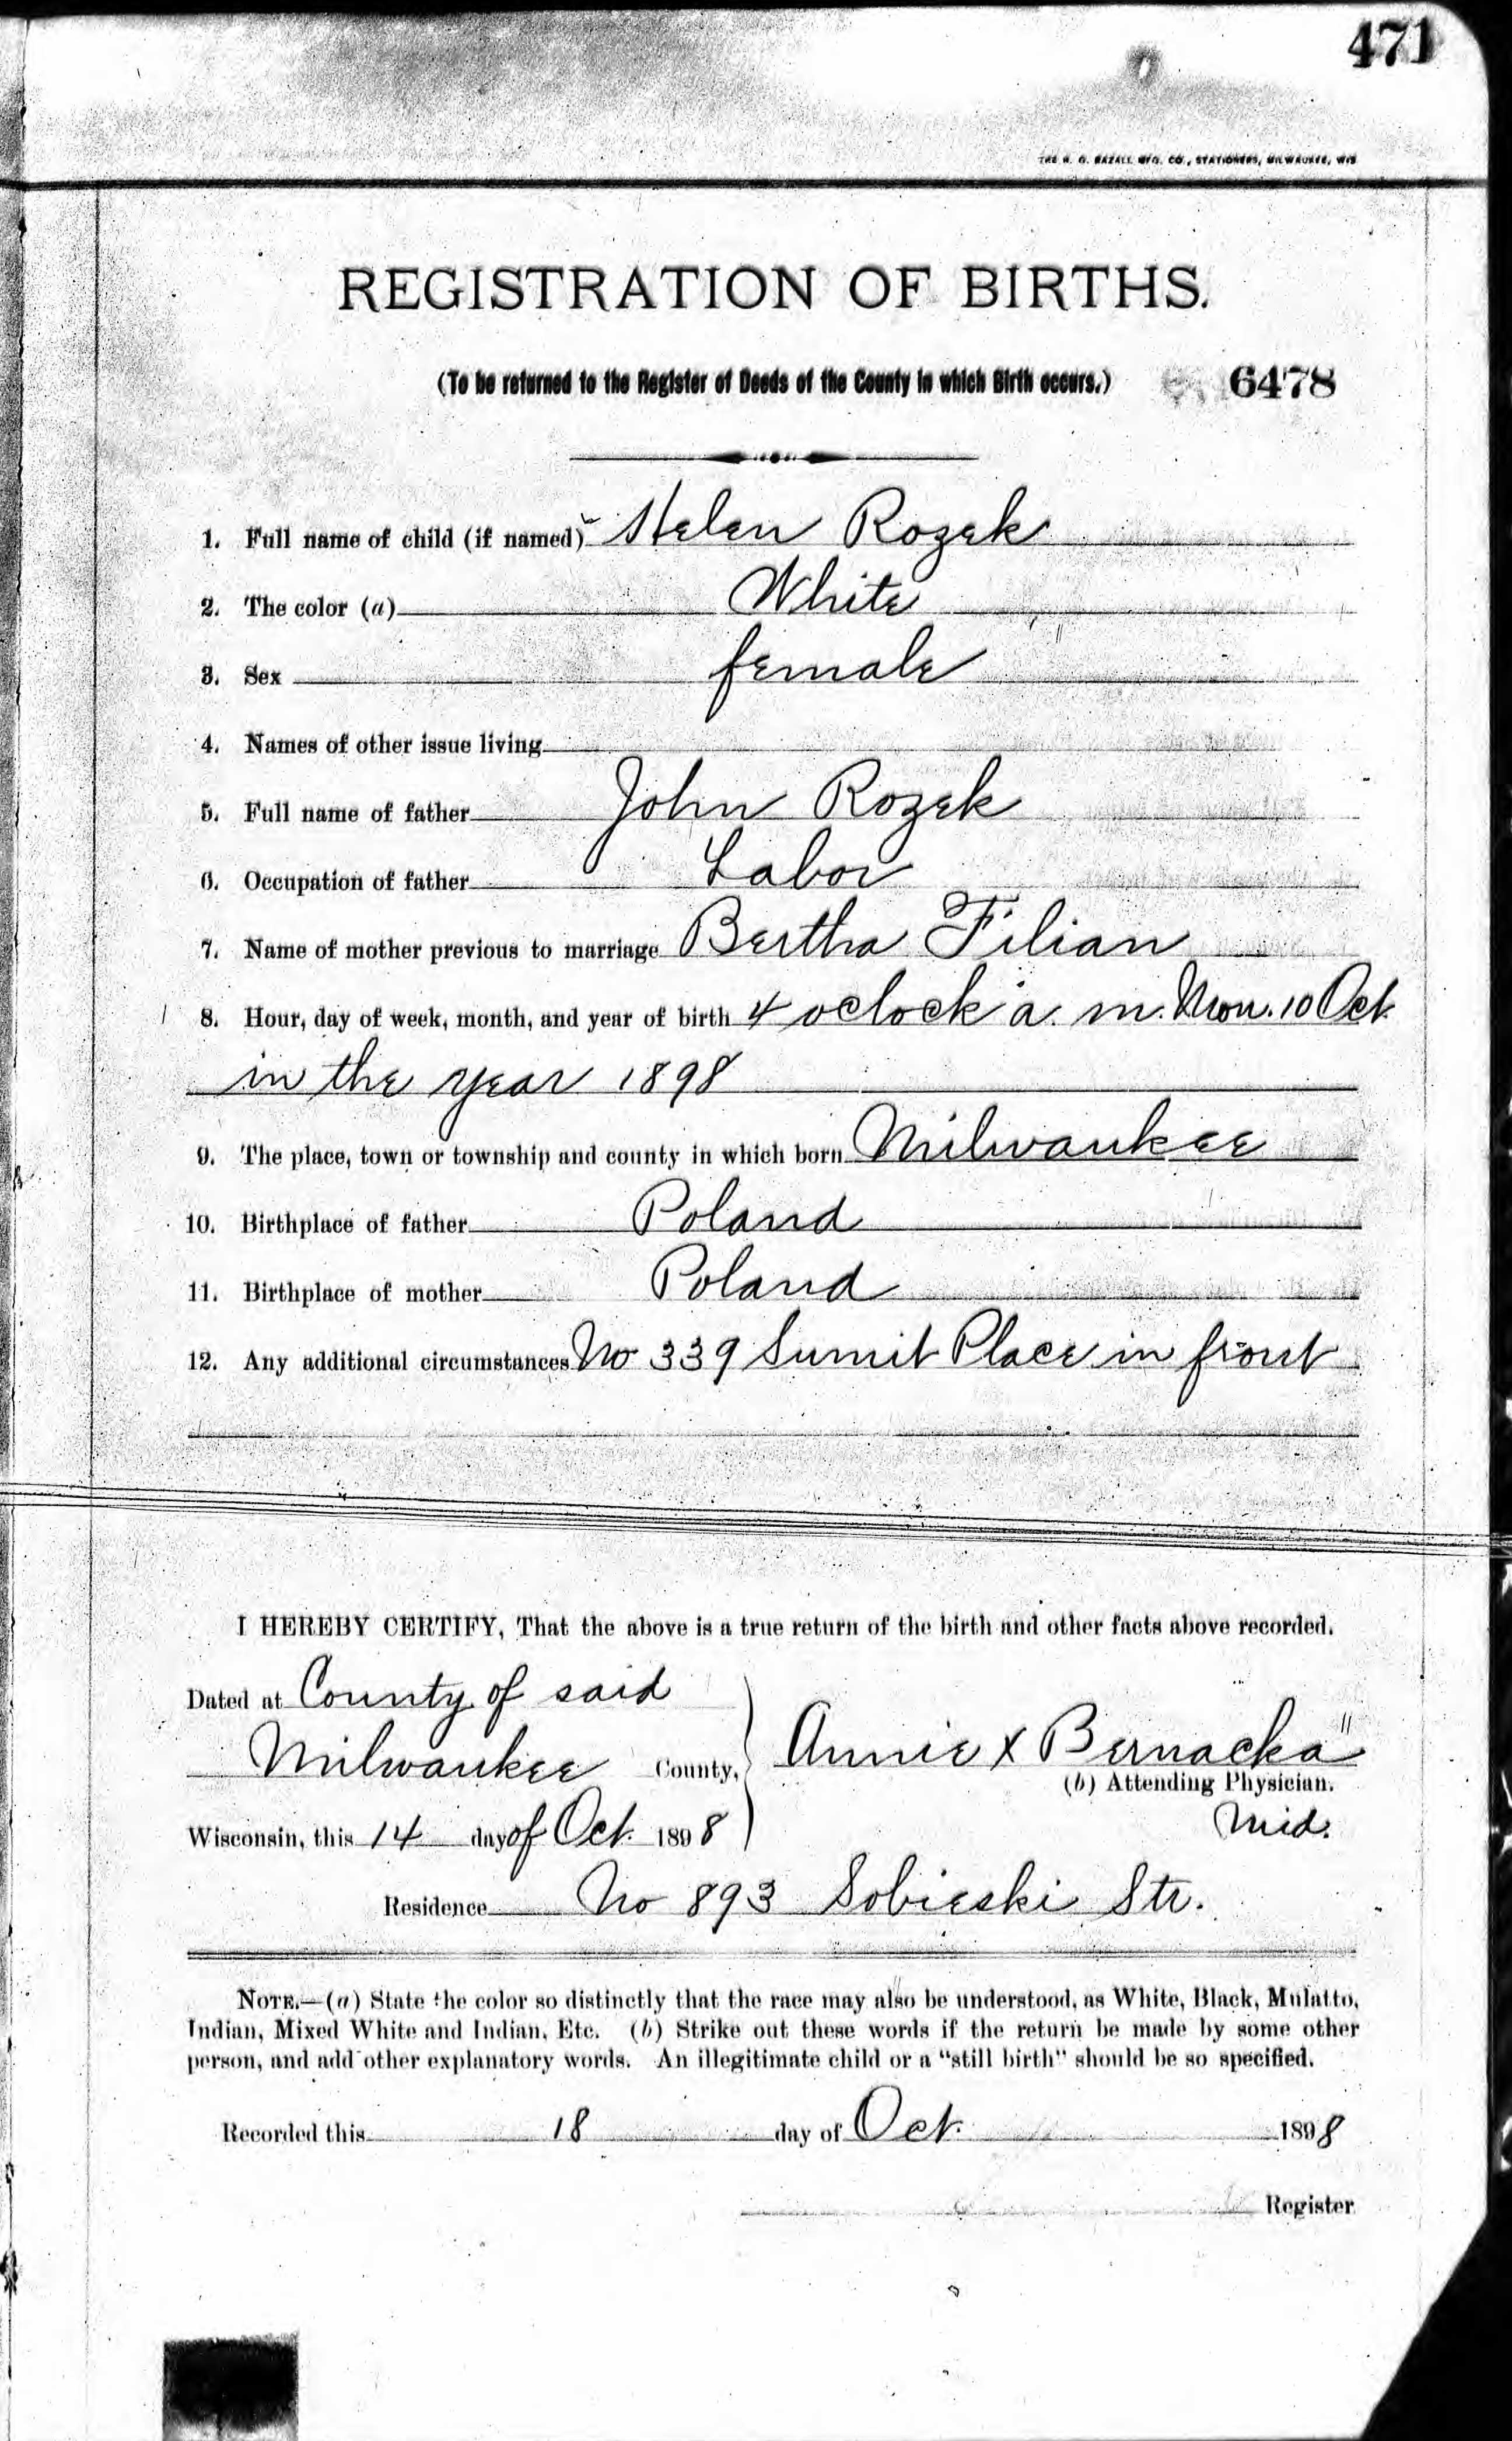 471
THE H. G. RAZALL MFG. CO., STATIONERS, MILWAUKEE, WIS
REGISTRATION OF BIRTHS.
(To be returned to the Register of Deeds of the County in which Birth occurs.) 6478
1. Full name of child (if named) Helen Rozek
2. The color (a) White
3. Sex female
4. Names of other issue living
5. Full name of father John Rozek
6. Occupation of father Labor
7. Name of mother previous to marriage Bertha Filian
8. Hour, day of week, month, and year of birth 4 oclock a. m. Mon. 10 Oct.
in the year 1898
9. The place, town or township and county in which born Milwaukee
10. Birthplace of father Poland
11. Birthplace of mother Poland
12. Any additional circumstances No 339 Sumit Place in front
I HEREBY CERTIFY, That the above is a true return of the birth and other facts above recorded.
Dated at County of said
Milwaukee County, Annie X Bernacka"
(b) Attending Physician.
Wisconsin, this 14 day of Oct. 1898 Mid.
Residence No 893 Sobieski Str.
NOTE.—(a) State the color so distinctly that the race may also be understood, as White, Black, Mulatto,
Indian, Mixed White and Indian, Etc. (b) Strike out these words if the return be made by some other
person, and add other explanatory words. An illegitimate child or a "still birth" should be so specified.
Recorded this 18 day of Oct. 1898
Register